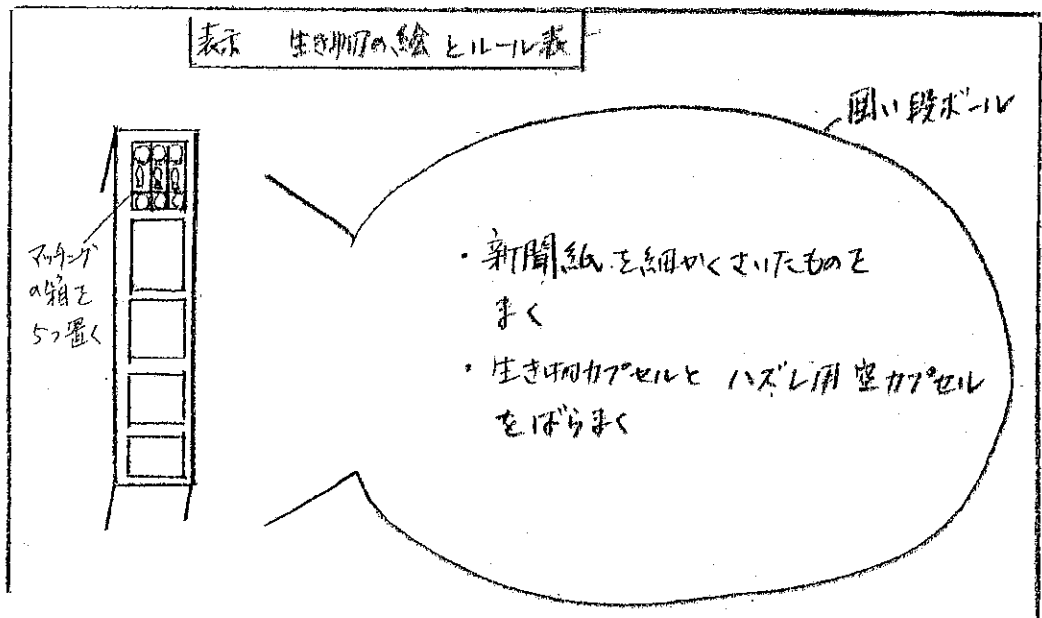 表示 生き物の絵とルール表
囲い段ボール
マッチング
の箱を
5つ置く
・新聞紙を細かくさいたものを
まく
・生き物カプセルと ハズレ用空カプセル
をばらまく